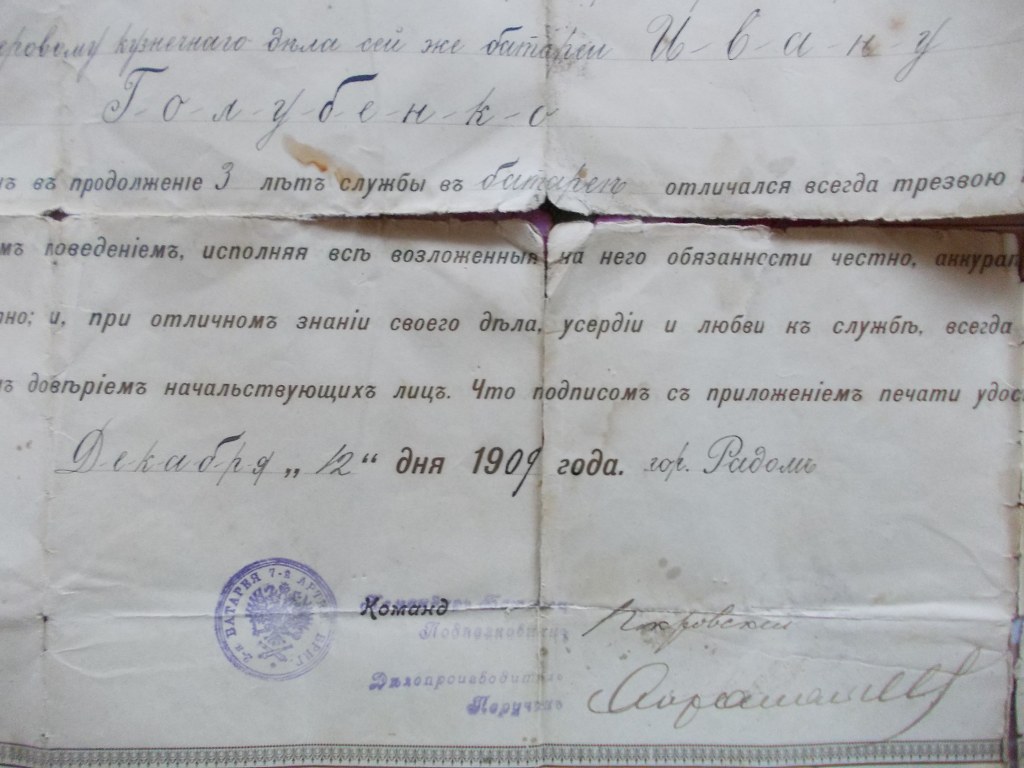 еровому кузнечнаго дѣла сей же батареи И-в-а-н-у
Г-о-л-у-б-е-н-к-о
ъ въ продолженіе 3 лѣтъ службы въ батареѣ отличался всегда трезвою
мъ поведеніемъ, исполняя всѣ возложенныя на него обязанности честно, аккурат
но; и, при отличномъ знаніи своего дѣла, усердіи и любви къ службѣ, всегда
ъ довѣріемъ начальствующихъ лицъ. Что подписомъ съ приложеніемъ печати удос
Декабря „12“ дня 1909 года. гор. Радомъ
2-я БАТАРЕЯ 7-й АРТ БРИГ.
Команд
Подполковникъ Покровскій
Дѣлопроизводитель
Поручикъ